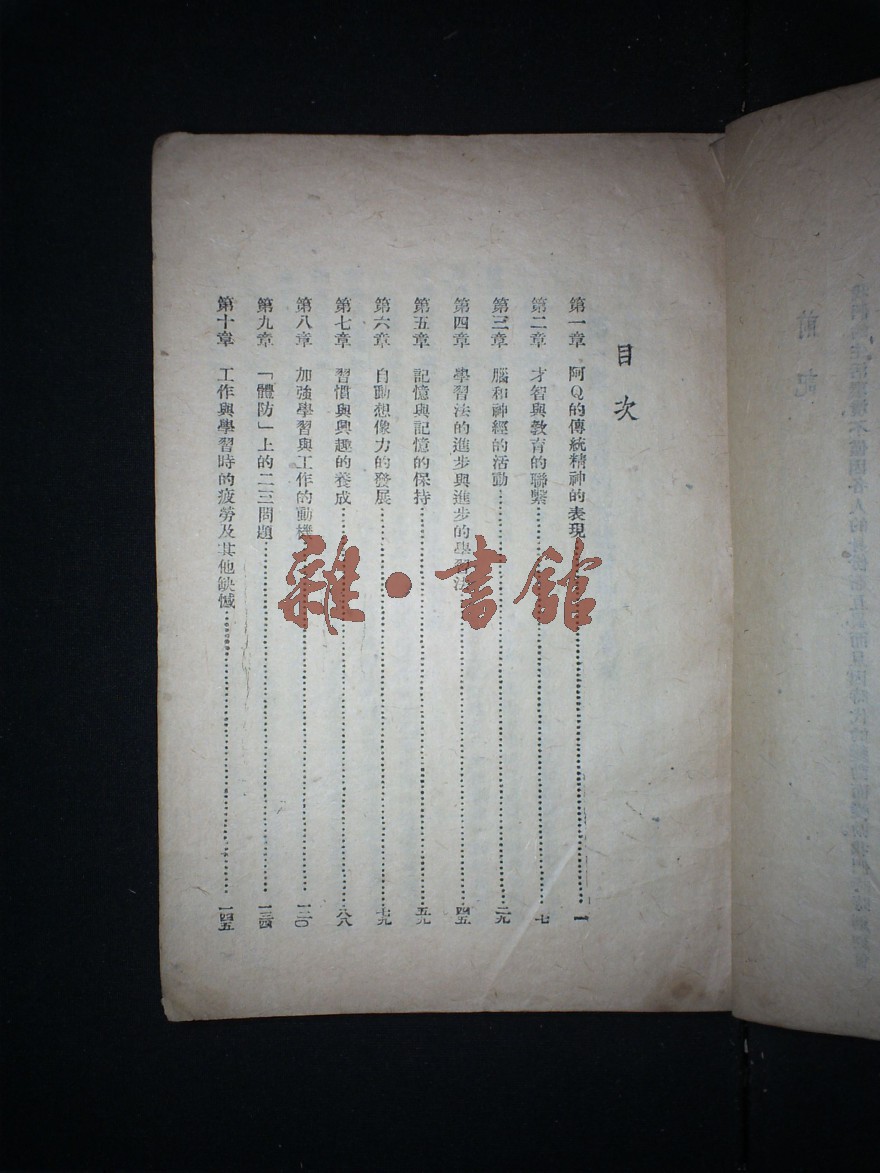 目次
第一章 阿Q的傳統精神的表現……一
第二章 才智與教育的聯繫……七
第三章 腦和神經的活動……二九
第四章 學習法的進步與進步的學習法……四五
第五章 記憶與記憶的保持……五九
第六章 自動想像力的發展……七九
第七章 習慣與興趣的養成……八八
第八章 加強學習與工作的動機……一二〇
第九章 「體防」上的二三問題……一三四
第十章 工作與學習時的疲勞及其他缺憾……一四五
雜·書館
前記